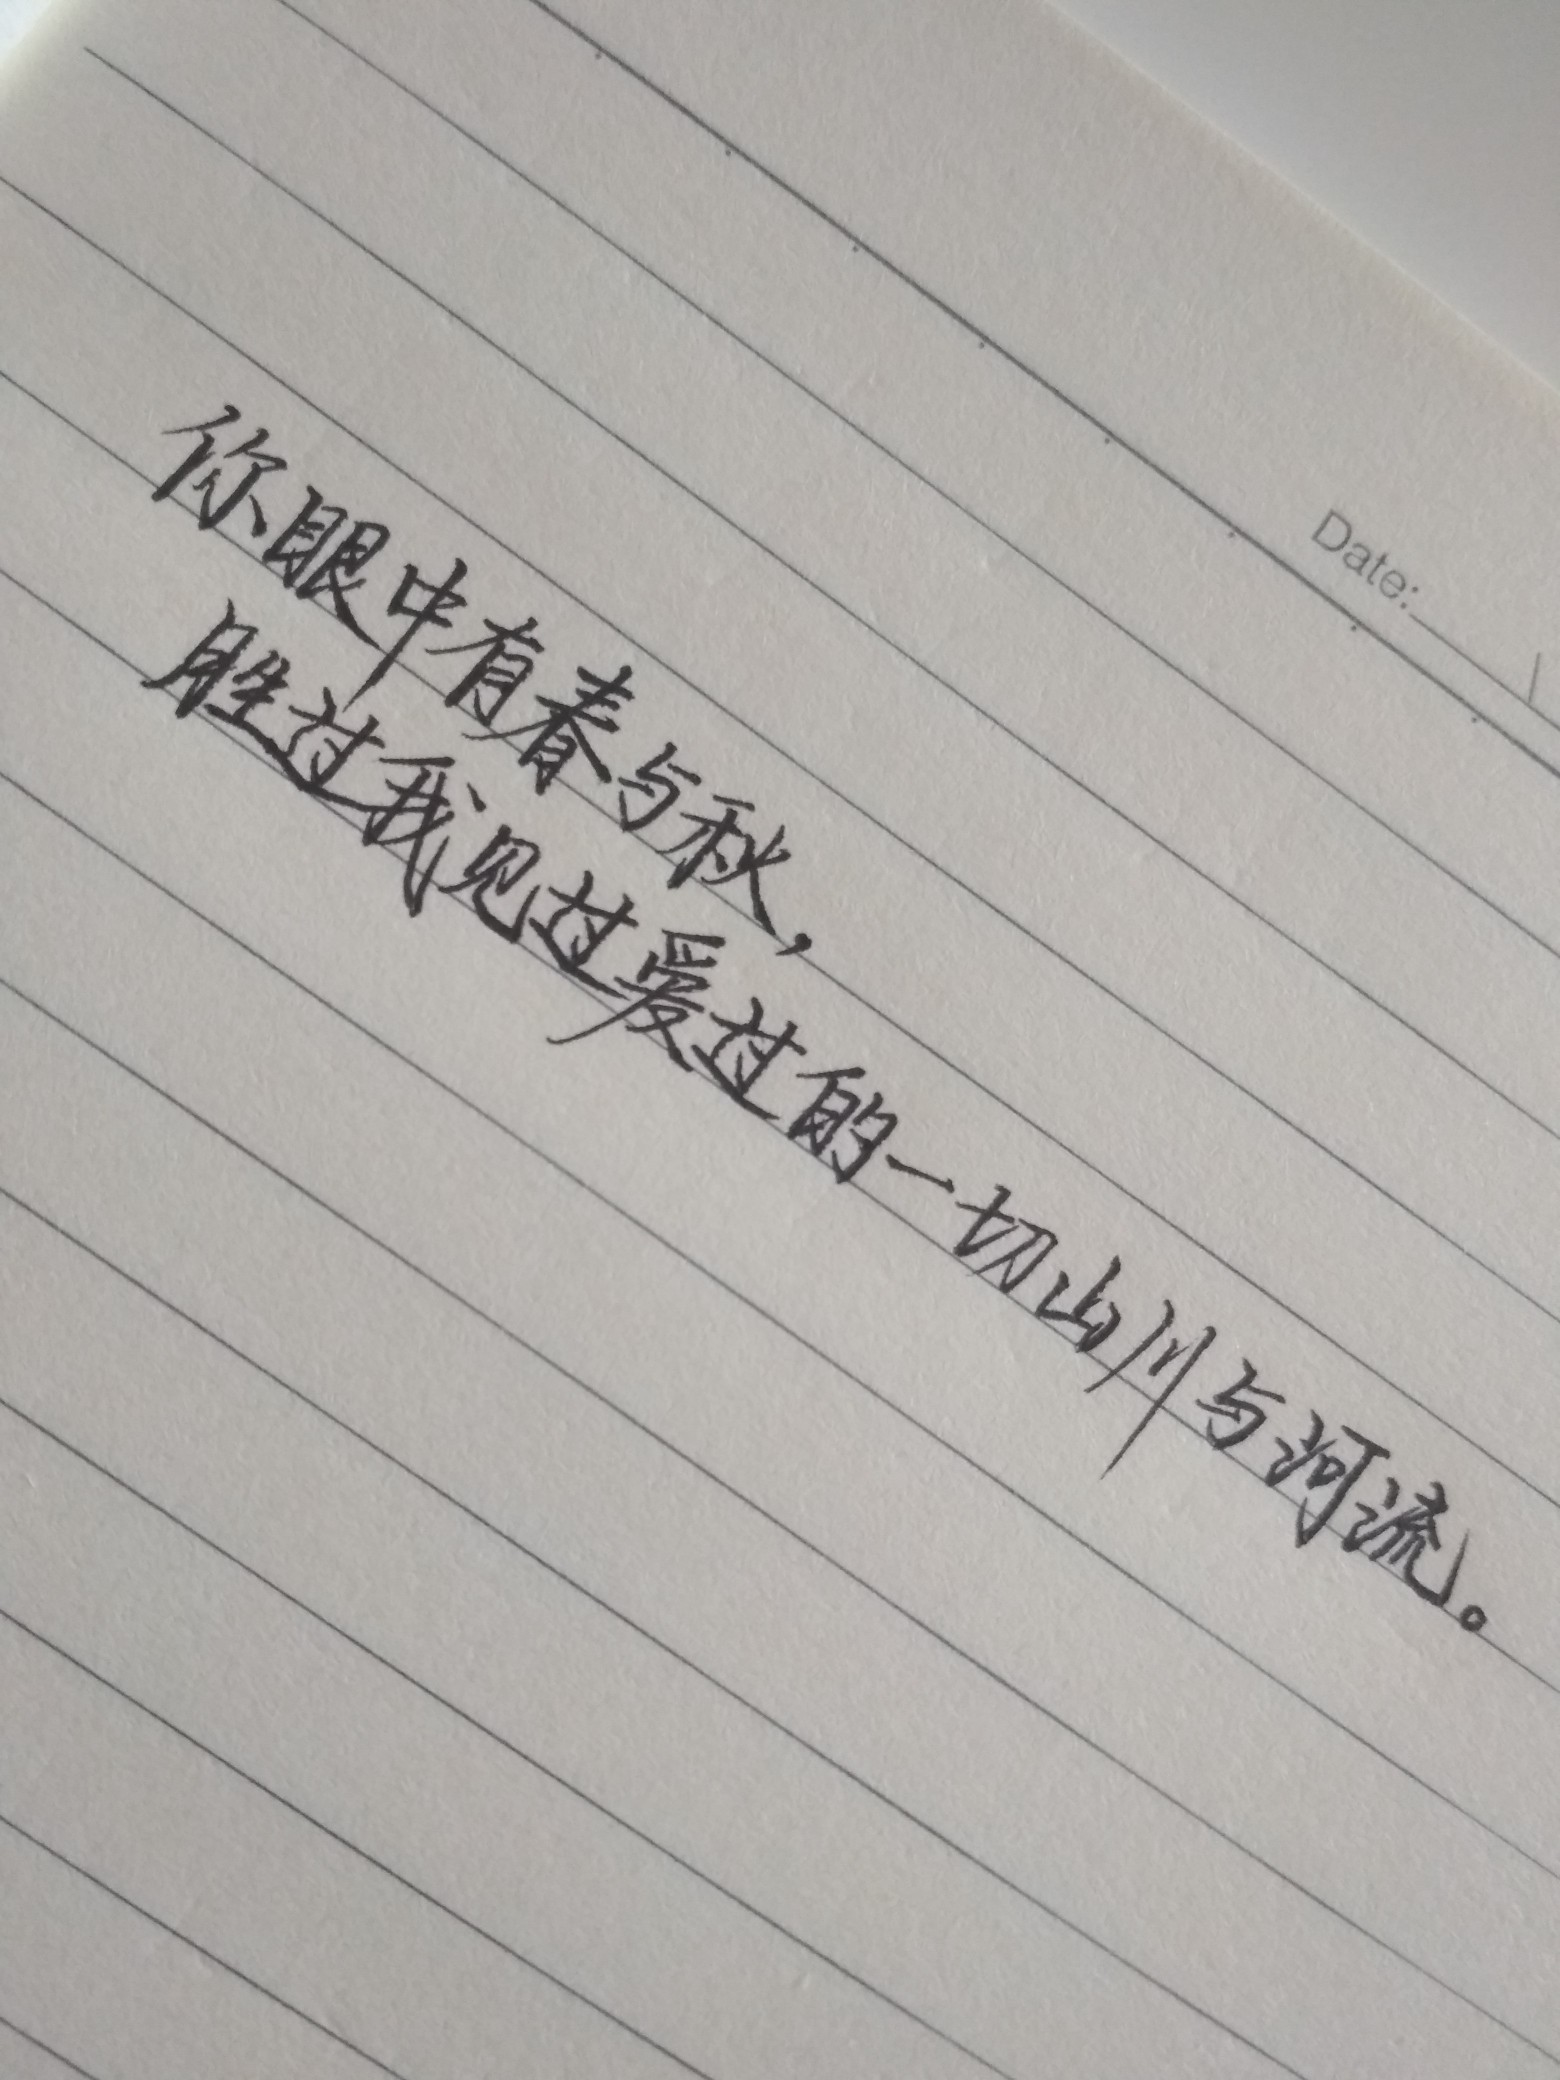 Date:
你眼中有春与秋，
胜过我见过爱过的一切山川与河流。